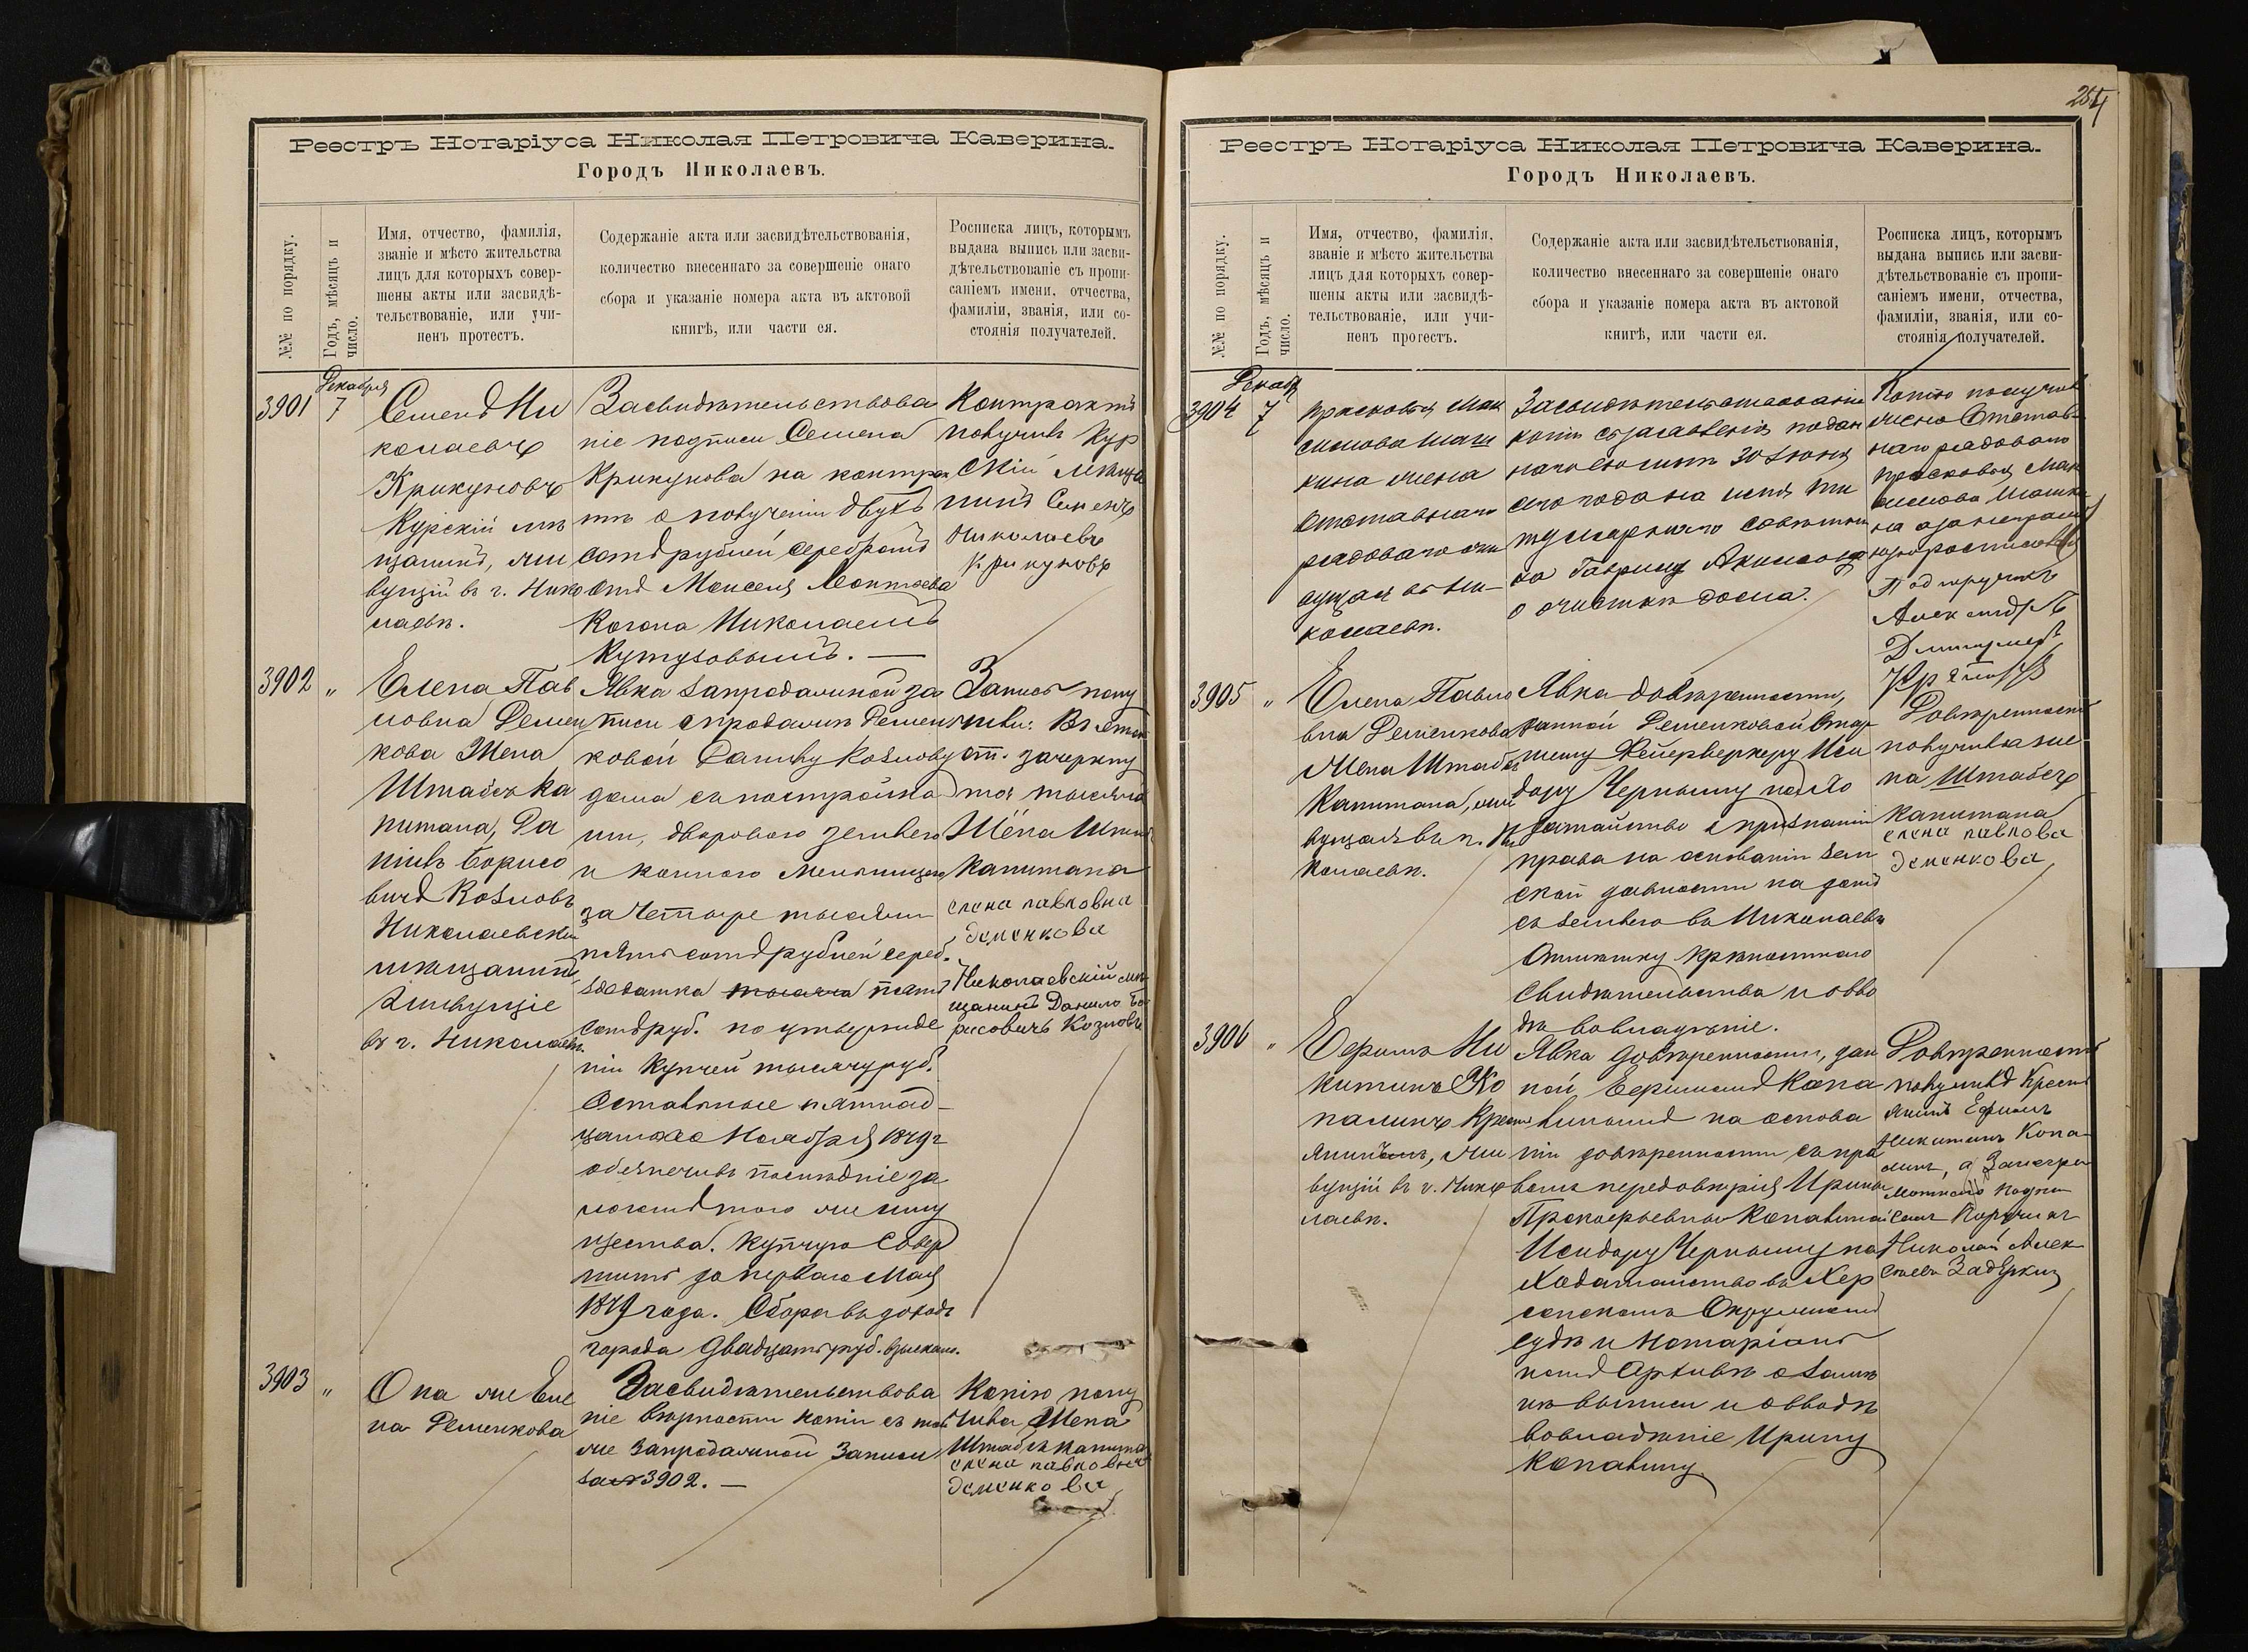 Реестръ Нотаріуса Николая Петровича Каверина.
Городъ Николаевъ.
№№ по порядку.
Годъ, мѣсяцъ и
число.
Имя, отчество, фамилія,
званіе и мѣсто жительства
лицъ для которыхъ совер-
шены акты или засвидѣ-
тельствованіе, или учи-
ненъ протестъ.
Содержаніе акта или засвидѣтельствованія,
количество внесеннаго за совершеніе онаго
сбора и указаніе номера акта въ актовой
книгѣ, или части ея.
Росписка лицъ, которымъ
выдана выпись или засви-
дѣтельствованіе съ пропи-
саніемъ имени, отчества,
фамиліи, званія, или со-
стоянія получателей.
3901
Декабря
7
Семенъ Ни
колаевъ
Крикуновъ
Курскій мѣ
щанинъ, жи
вущій въ г. Нико
лаевѣ.
Засвидѣтельствова
ніе подписи Семена
Крикунова на контрак
тѣ о полученіи двухъ
сотъ рублей серебромъ
отъ Моисея Леонтьева
Когона Николаемъ
Кутузовымъ. —
Контрактъ
получилъ Кур
скій мѣща
нинъ Семенъ
Николаевъ
Крикуновъ
3902
"
Елена Пав
ловна Демен
кова Жена
Штабсъ ка
питана, Да
нилъ Борисо
вичъ Козловъ
Николаевскій
мѣщанинъ
живущіе
въ г. Николаевѣ.
Явка запродажной за
писи о продажѣ Демен
ковой Данилу Козлову
дома съ постройка
ми, двороваго землею
и коннаго мельницею
за четыре тысячи
пятьсотъ рублей сереб.
задатка тысяча пять
сотъ руб. по утвержде
ніи Купчей тысячу руб.
Остальные пятнад-
цатаго Ноября 1879 г
обезпечивъ послѣдніе за
логомъ того же иму
щества. Купчую Совер
шить до перваго Мая
1879 года. Сбора въ доходъ
города двадцать руб. взыскан.
Запись полу
чили:
зачеркну
то тысяча
Жена Штабсъ
Капитана
елена павловна
деменкова
Николаевскій мѣ
щанинъ Данило Бо
рисовичъ Козловъ
3903
"
Она же Еле
на Деменкова
Засвидѣтельствова
ніе вѣрности копіи съ той
же запродажной записи
за № 3902. —
Копію полу
чила Жена
Штабсъ капита
елена павловна
деменкова
254
Реестръ Нотаріуса Николая Петровича Каверина.
Городъ Николаевъ.
№№ по порядку.
Годъ, мѣсяцъ и
число.
Имя, отчество, фамилія,
званіе и мѣсто жительства
лицъ для которыхъ совер-
шены акты или засвидѣ-
тельствованіе, или учи-
ненъ протестъ.
Содержаніе акта или засвидѣтельствованія,
количество внесеннаго за совершеніе онаго
сбора и указаніе номера акта въ актовой
книгѣ, или части ея.
Росписка лицъ, которымъ
выдана выпись или засви-
дѣтельствованіе съ пропи-
саніемъ имени, отчества,
фамиліи, званія, или со-
стоянія получателей.
3904
Декаб
7
Прасковья Мак
симова Шаш
кина жена
отставнаго
рядоваго жи
вущая въ Ни-
колаевѣ.
Засвидѣтельствованіе
копіи съ заявленія подан
наго Ею мнѣ 30 Іюня
сего года на имя ти
тулярнаго совѣтни
ка Гаврилу Акимова
о очисткѣ дома.
Копію получила
жена Отстав-
наго рядоваго
Прасковья Мак
симова Шашки
на а за неграмот
ную росписался
Подпоручикъ
Александръ
Дмитріевъ
3905
"
Елена Павло
вна Деменкова
Жена Штабсъ
Капитана, жи
вущая въ г. Ни
колаевѣ.
Явка довѣренности,
данной Деменковой Стар
шему Фейерверкеру Иси
дору Чернышу на Хо
датайство о признаніи
права на основаніи зем
ской давности на домъ
съ землею въ Николаевѣ
Отмѣтку крѣпостнаго
Свидѣтельства и овво
дѣ вовладѣніе.
Довѣренность
получила же
на Штабсъ
Капитана
елена павлова
деменкова
3906
"
Ефимъ Ни
китинъ Ко
палинъ Кресть
янинъ, жи
вущій въ г. Нико
лаевѣ.
Явка довѣренности, дан
ной Ефимомъ Копа
линымъ на основа
ніи довѣренности съ пра
вомъ передовѣрія Ирины
Прокофьевны Копалиной
Исидору Чернышу на
Ходатайство въ Хер
сонскомъ Окружномъ
судѣ и Нотаріаль
номъ Архивѣ
выписи и овводѣ
вовладѣніе Ирину
Копалину.
Довѣренность
получилъ Кресть
янинъ Ефимъ
Никитинъ Копа
линъ, а За негра
мотнаго подпи
салъ Поручикъ
Николай Алек